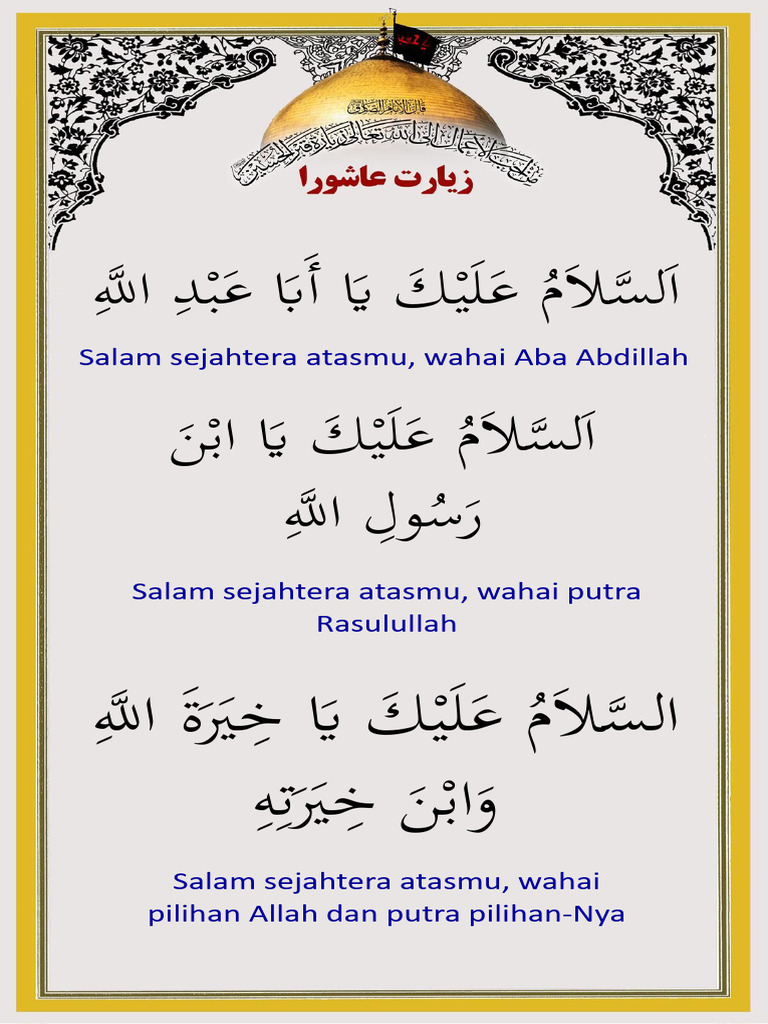 قال الإمام الصادق
زیارت عاشورا
اَلسَّلاَمُ عَلَيْكَ يَا أَبَا عَبْدِ اللَّهِ
Salam sejahtera atasmu, wahai Aba Abdillah
اَلسَّلاَمُ عَلَيْكَ يَا ابْنَ
رَسُولِ اللَّهِ
Salam sejahtera atasmu, wahai putra
Rasulullah
السَّلاَمُ عَلَيْكَ يَا خِيَرَةَ اللَّهِ
وَابْنَ خِيَرَتِهِ
Salam sejahtera atasmu, wahai
pilihan Allah dan putra pilihan-Nya